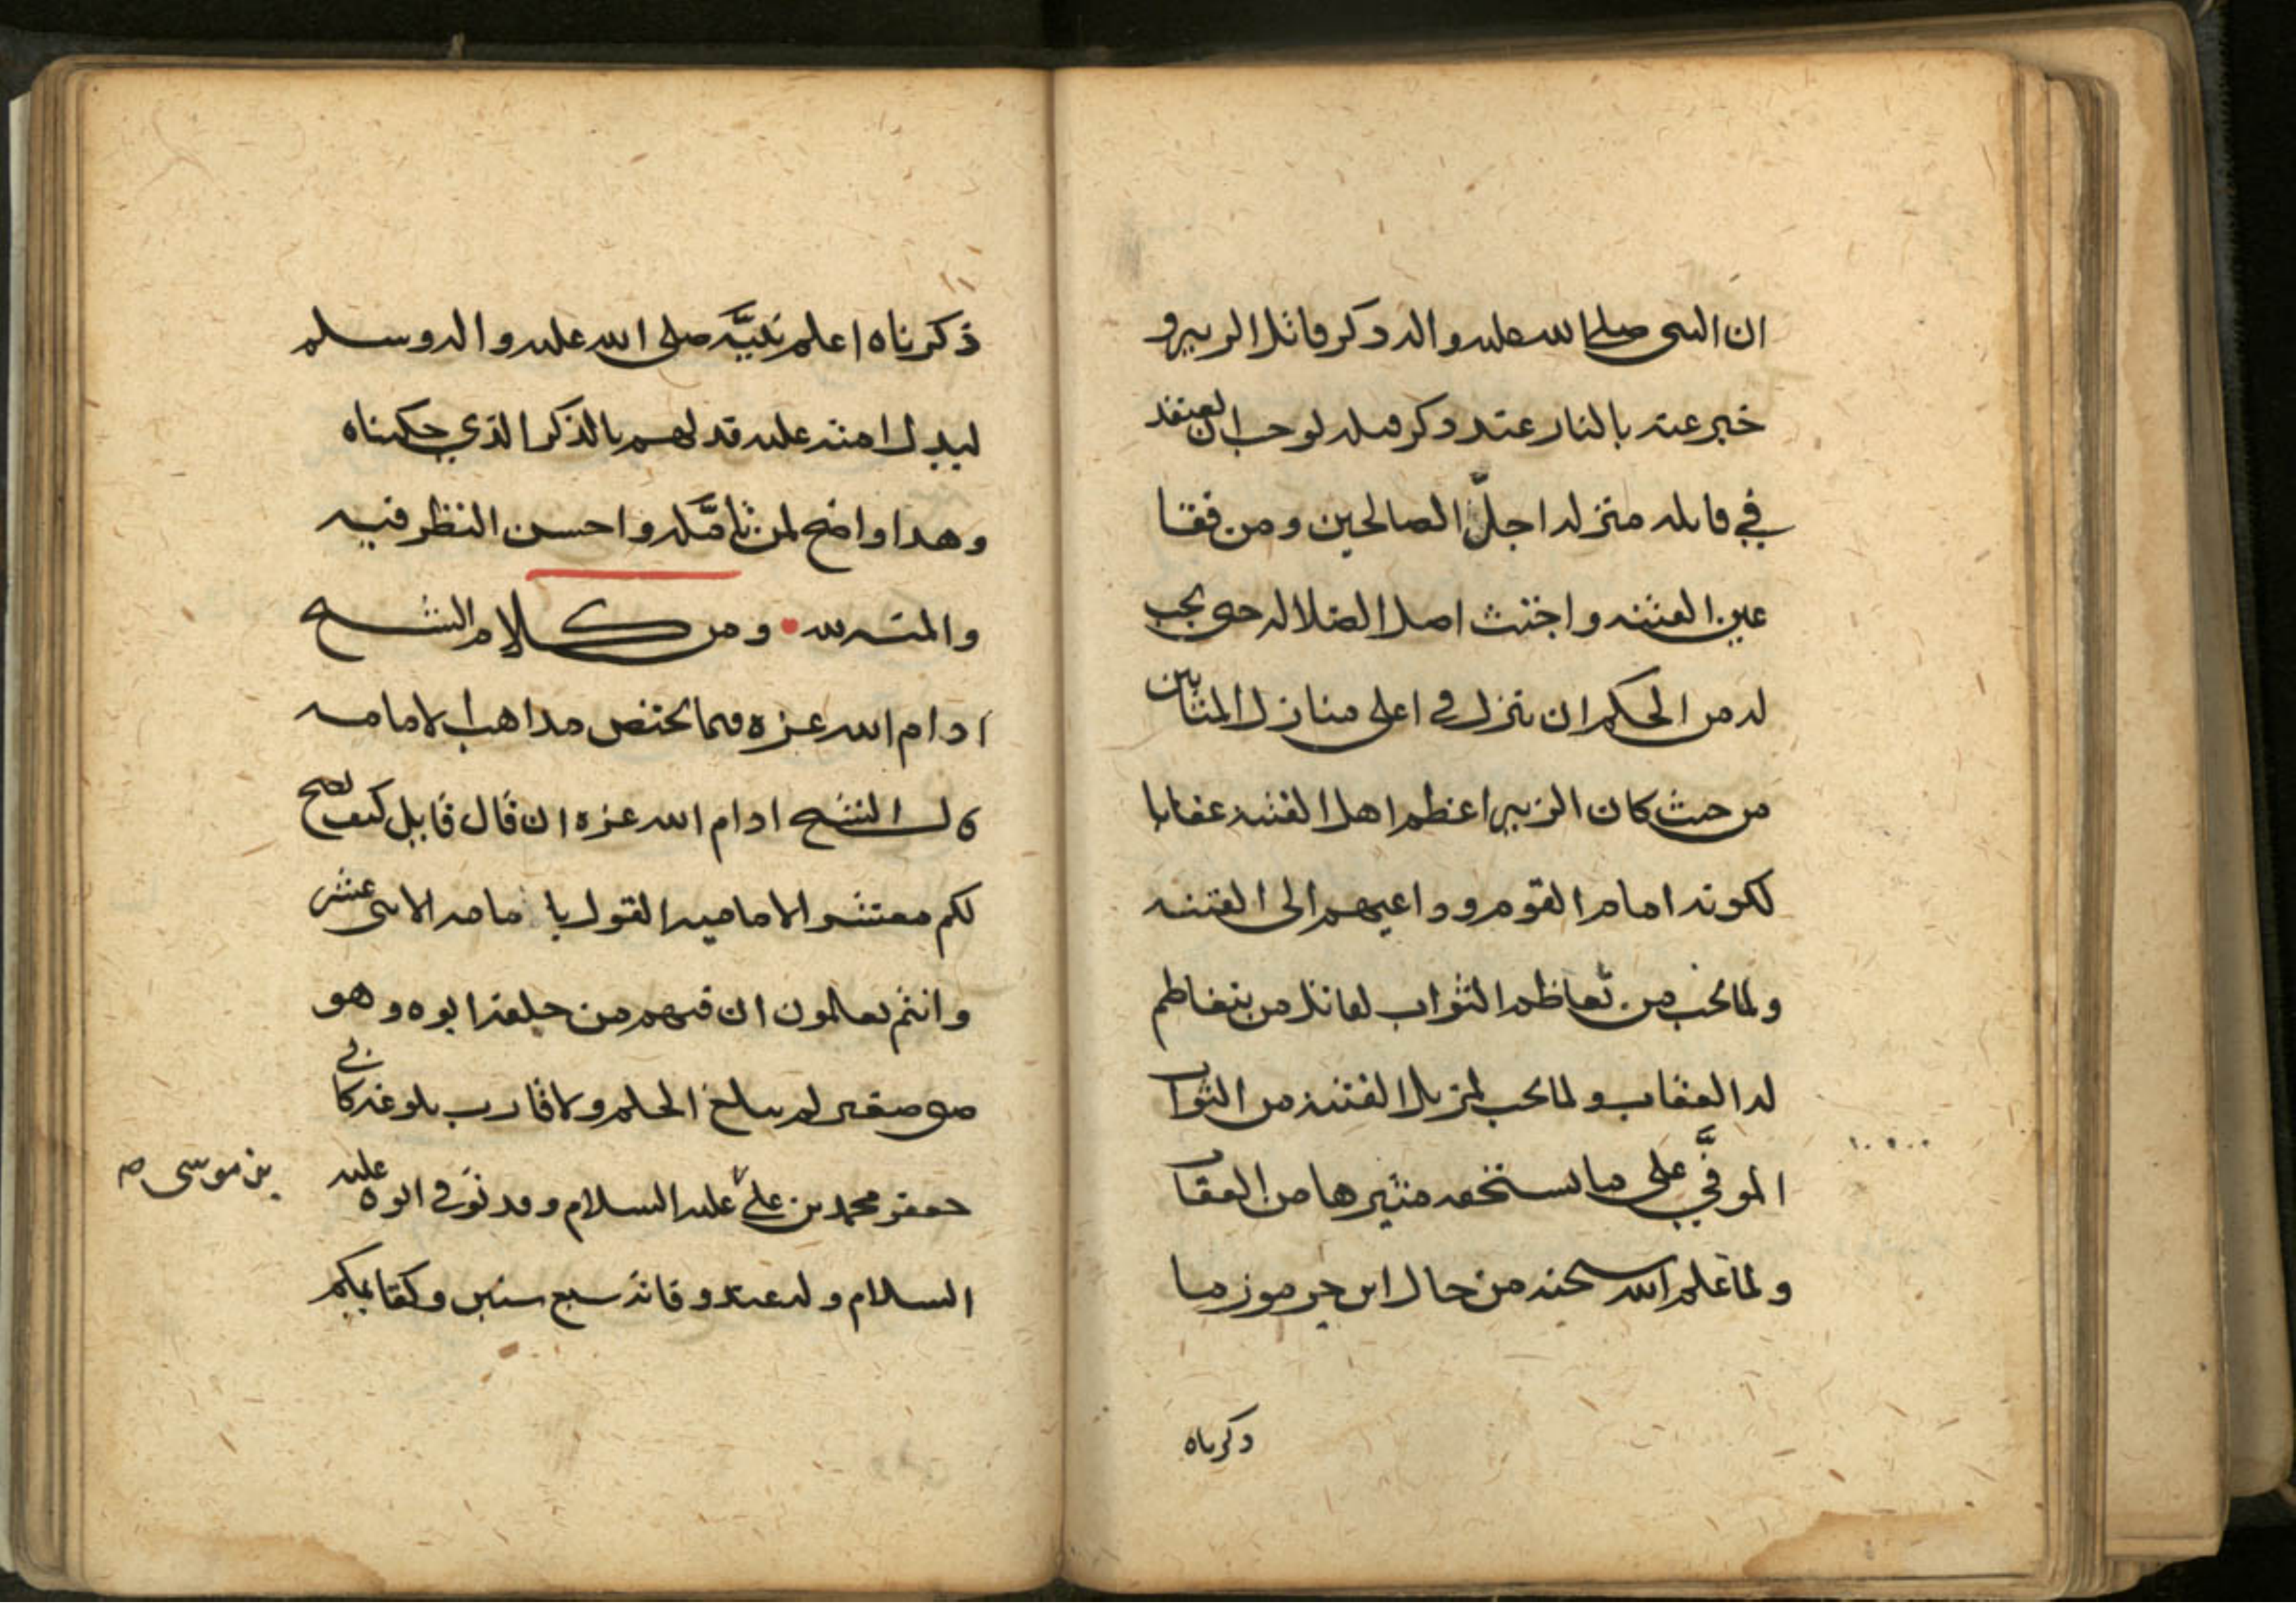 ان النبي صلى الله عليه واله ذكر قاتل الزبير و
خبر عنه بالنار عند ذكر قتله لوجب ان يعتقد
في قاتله منزله اجلّ الصالحين ومن فقا
عين الفتنه واجتث اصل الضلاله حتى يجب
له من الحكم ان ينزل في اعلى منازل المثابين
من حيث كان الزبير اعظم اهل الفتنه عقابا
لكونه امام القوم وداعيهم الى الفتنه
ولما يجب من تعاظم الثواب لقاتل من يتعاظم
له العقاب ولما يجب لمزيل الفتنه من الثواب
الموفّي على ما يستحقه مثيرها من العقا
ولما علم الله سبحنه من حال ابن جرموز ما
ذكرناه
ذكرناه اعلم نبيّه صلى الله عليه واله وسلم
ليدل امته عليه قدلهم بالذكر الذي حكيناه
وهذا واضح لمن تامّله واحسن النظر فيه
والمنه لله ومن كلام الشيخ
ادام الله عزه فيما يختص مذاهب الامامه
قال الشيخ ادام الله عزه ان قال قايل كيف يصح
لكم معتشر الاماميه القول با مامه الاثنى عشر
وانتم تعالمون ان فيهم من خلفه ابوه وهو
صبي صغير لم يبلغ الحلم ولا قارب بلوغه كابي
جعفر محمد بن علي عليه السلام وقد توفى ابوه عليه
بن موسى صح
السلام وله عند وفاته سبع سنين وكقايمكم